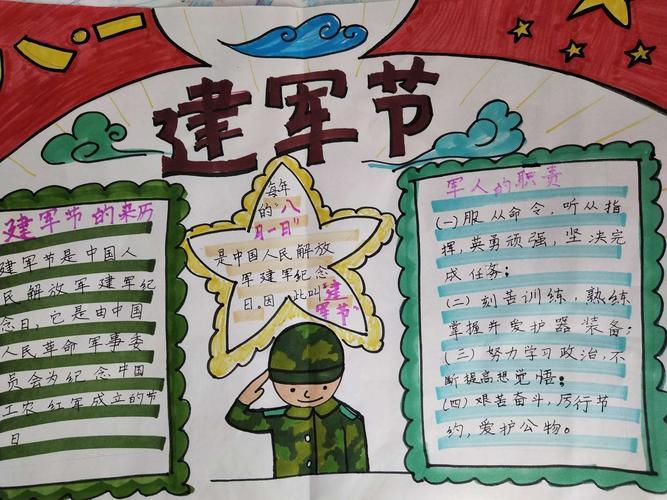 八一
建军节
建军节的来历
建军节是中国人
民解放军建军纪
念日,它是由中国
人民革命军事委
员会为纪念中国
工农红军成立的节
日
每年
的"八
月一日"
是中国人民解放
军建军纪念
日,因此叫"建
军节"
军人的职责
(一)服从命令,听从指
挥,英勇顽强,坚决完
成任务;
(二)刻苦训练,熟练
掌握并爱护器装备;
(三)努力学习政治,不
断提高想觉悟;
(四)艰苦奋斗,厉行节
约,爱护公物。